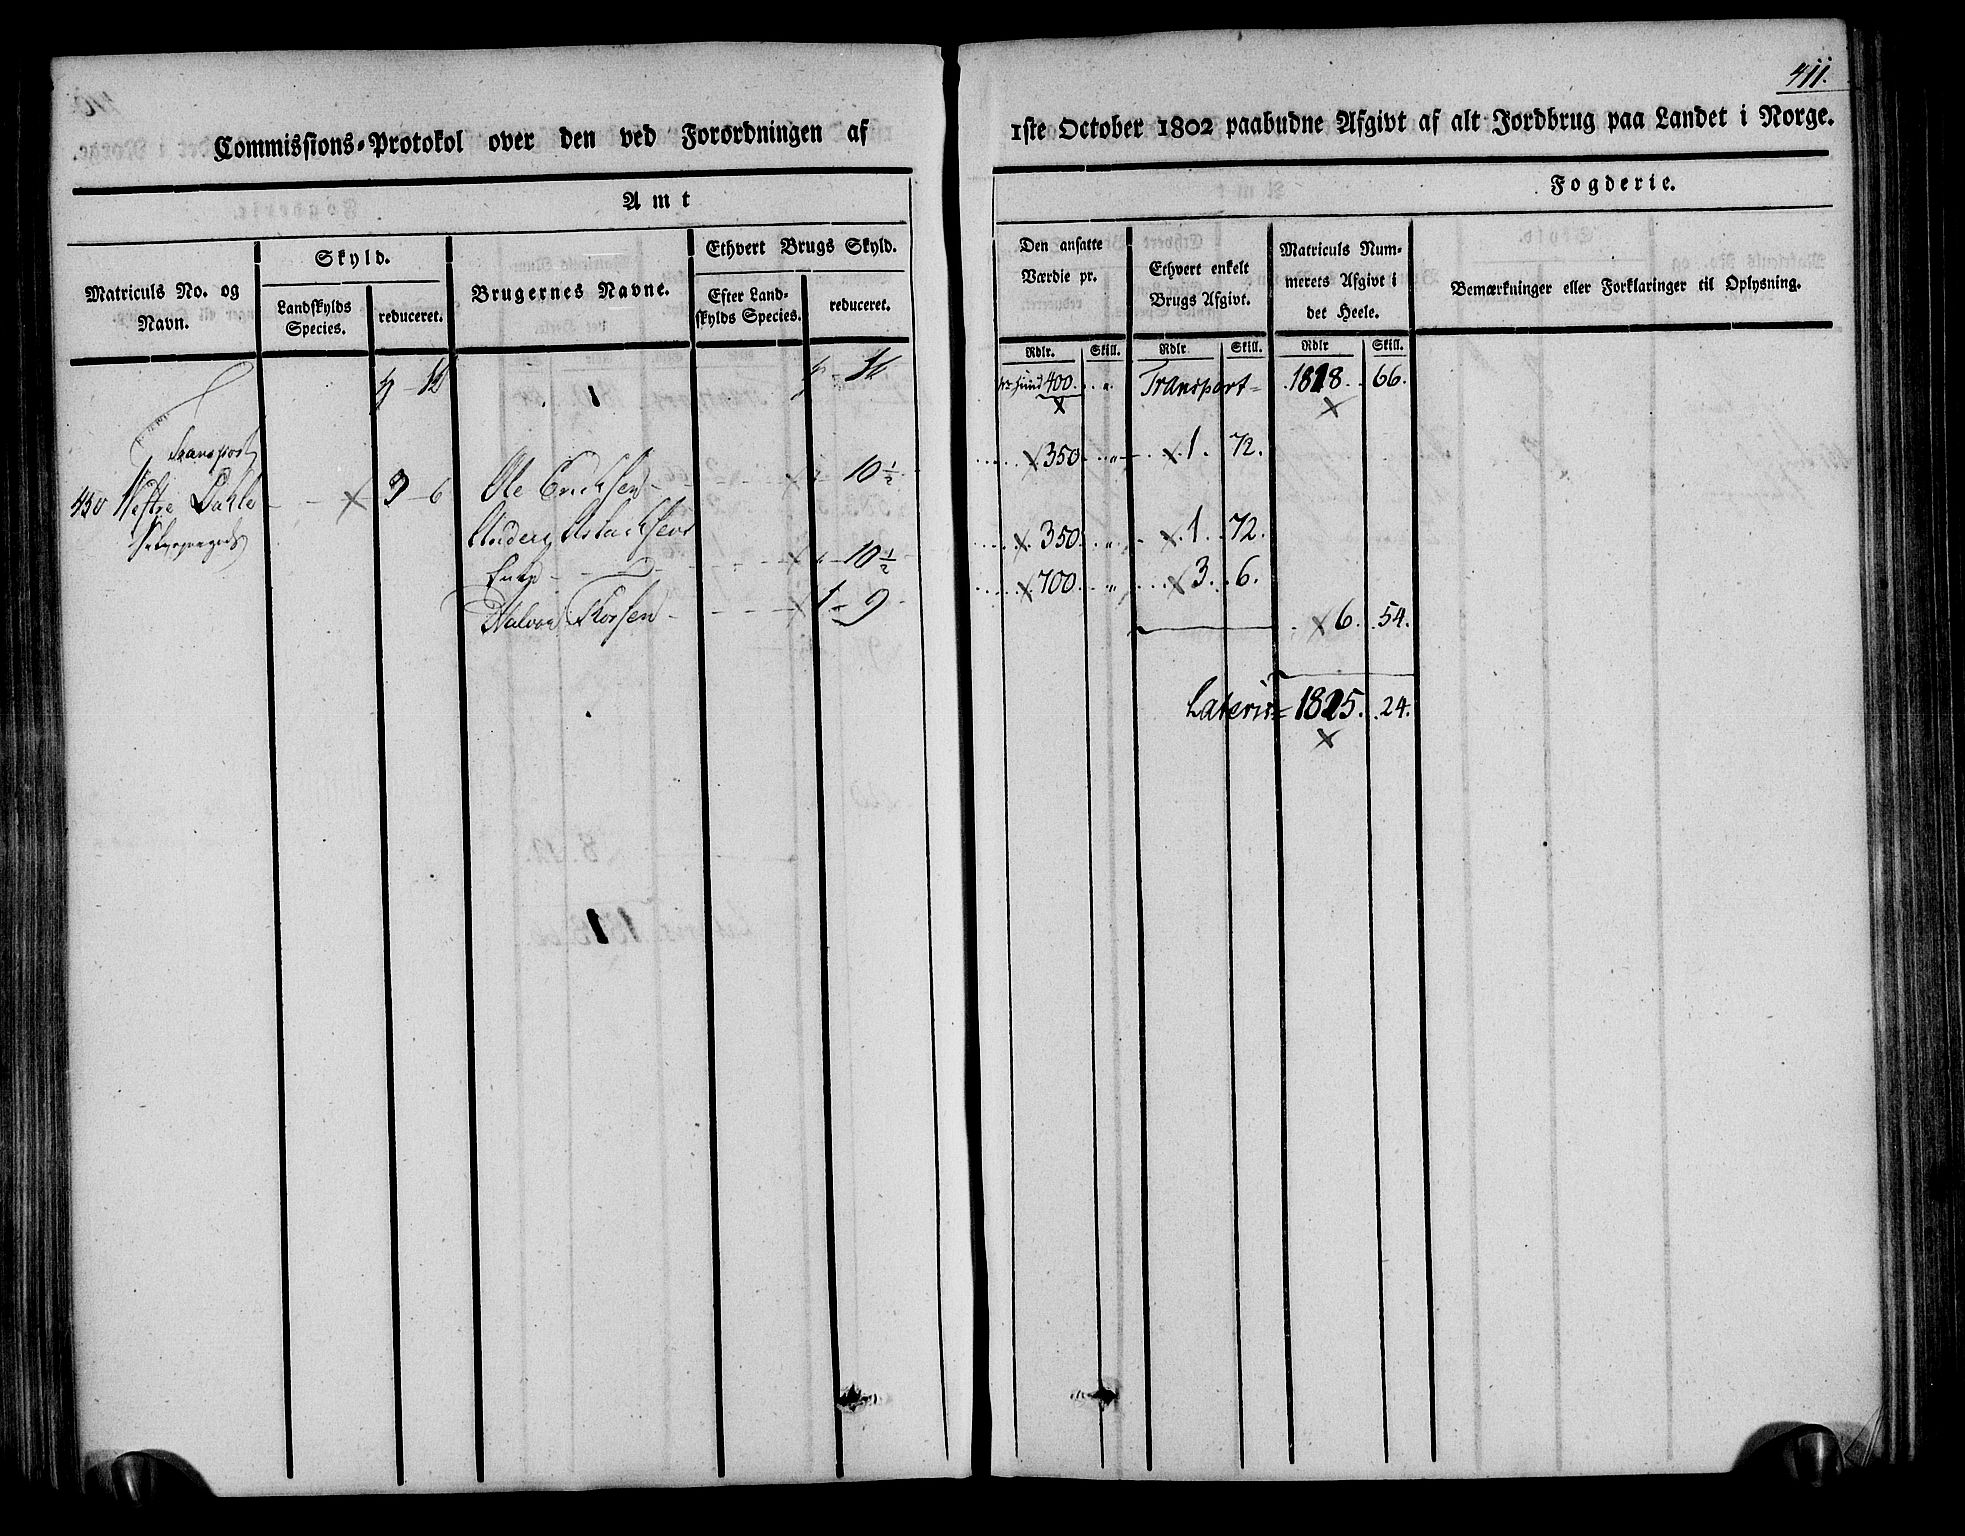 411.
Commissions-Protokol over den ved Forordningen af
1ste October 1802 paabudne Afgivt af alt Jordbrug paa Landet i Norge.
Amt
Fogderie.
Matriculs No. og Navn.
Skyld.
Landskylds Species.
reduceret.
Brugernes Navne.
Ethvert Brugs Skyld.
Efter Landskylds Species.
reduceret.
Den ansatte Værdie pr.
Ethvert enkelt Brugs Afgivt.
Matriculs Nummerets Afgivt i det Heele.
Bemærkninger eller Forklaringer til Oplysning.
Rdlr. Skill. Rdlr. Skill. Rdlr Skill.
400. Transport 1818. 66.
Transport
450 Westre Dahle 3 - 6 Ole Erichsen 10 1/2 350 1. 72.
Selveyergods
Anders Aslachsens
Enke 10 1/2 350 1. 72.
Halvor Torsen 1 - 9 700 3. 6.
6. 54.
Lateris 1825. 24.